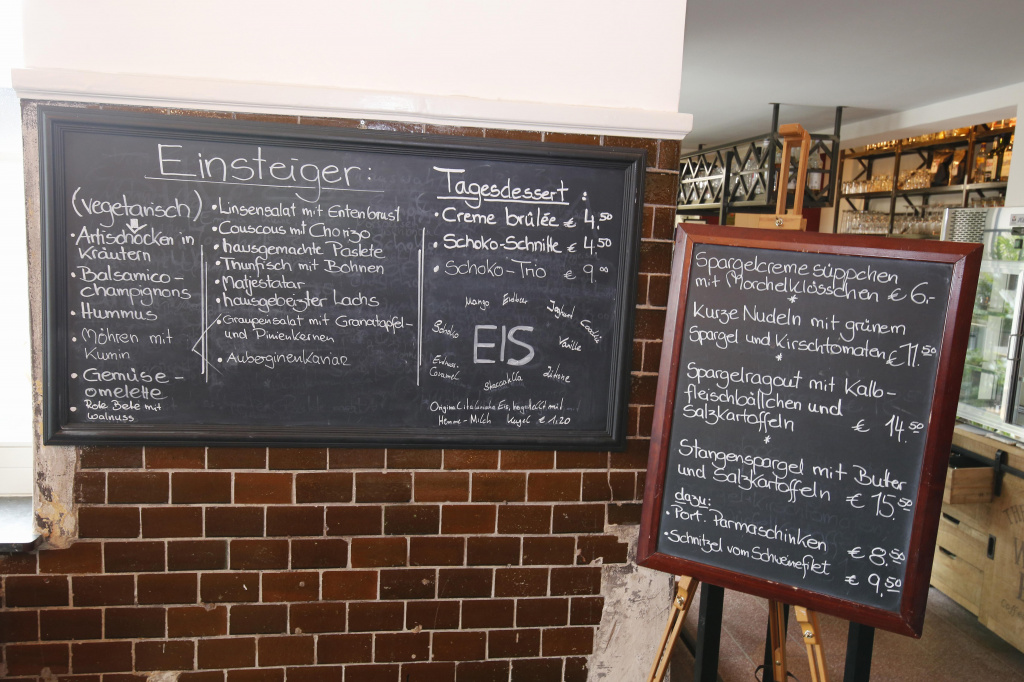 Einsteiger:
(vegetarisch)
• Artischocken in
Kräutern
• Balsamico-
champignons
• Hummus
• Möhren mit
Kumin
• Gemüse-
omelette
• Rote Bete mit
Walnuss
• Linsensalat mit Entenbrust
• Couscous mit Chorizo
• hausgemachte Pastete
• Thunfisch mit Bohnen
• Matjestatar
• hausgebeizter Lachs
• Graupensalat mit Granatapfel-
und Pinienkernen
• Auberginenkaviar
Tagesdessert:
• Creme brûlée € 4,50
• Schoko-Schnitte € 4,50
• Schoko-Trio € 9,00
Mango
Erdbeer
Joghurt
Schoko
EIS
Vanille
Erdnuss-
Caramel
Staccatella
Zitrone
Original italienische Eis, hergestellt mit
Hemme-Milch Kugel € 1,20
Spargelcremesüppchen
mit Morchelklösschen € 6,-
*
Kurze Nudeln mit grünem
Spargel und Kirschtomaten € 11,50
*
Spargelragout mit Kalb-
fleischbällchen und
Salzkartoffeln € 14,50
*
Stangenspargel mit Butter
und Salzkartoffeln € 15,50
dazu:
• Port. Parmaschinken € 8,50
• Schnitzel vom Schweinefilet € 9,50